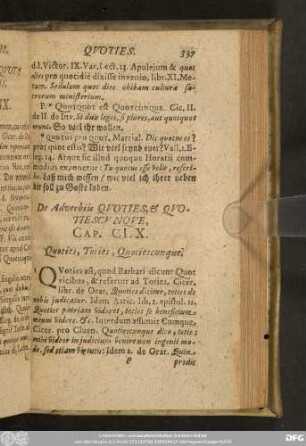 QVOTIES. 337
d.l. Victor. IX. Var. Lect. 13. Apulejum & quot
dies pro quotidie dixisse invenio, libr. XI. Me-
tam. Sedulum quot dies obibam culturæ sa-
crorum ministerium.
P. * Quotquot est Quotcunque. Cic. II.
de II. de Inv. Si duæ leges, si plures, aut quotquot
erunt. So viel ihr wollen.
* Quotus pro Quot. Martial. Dic quotus es?
pro; quot estis? Wie viel seynd euer? Vall. I. E-
leg. 14. Atque sic illud quoque Horatii com-
modius exponetur: Tu quotus esse velis, rescri-
be. laß mich wissen / wie viel ich ihrer neben
dir soll zu Gaste laden.
De Adverbiis QVOTIES, & QVO-
TIESCVNQVE,
CAP. CLX.
Quoties, Toties, Quotiescunque.
QVoties est, quod Barbari dicunt Quot
vicibus, & refertur ad Toties, Cicer.
libr. de Orat. Quoties dicitur, toties de
nobis judicatur. Idem Attic. lib. 1. epistol. 11.
Quoties patriam videret, toties se beneficium
meum videre. &c. Interdum assumit Cunque,
Cicer. pro Cluen. Quotiescunque dico, toties
mihi videor in judicium venire non ingenii mo-
do, sed etiam virtutis: Idem 2. de Orat. Quin-
prodit